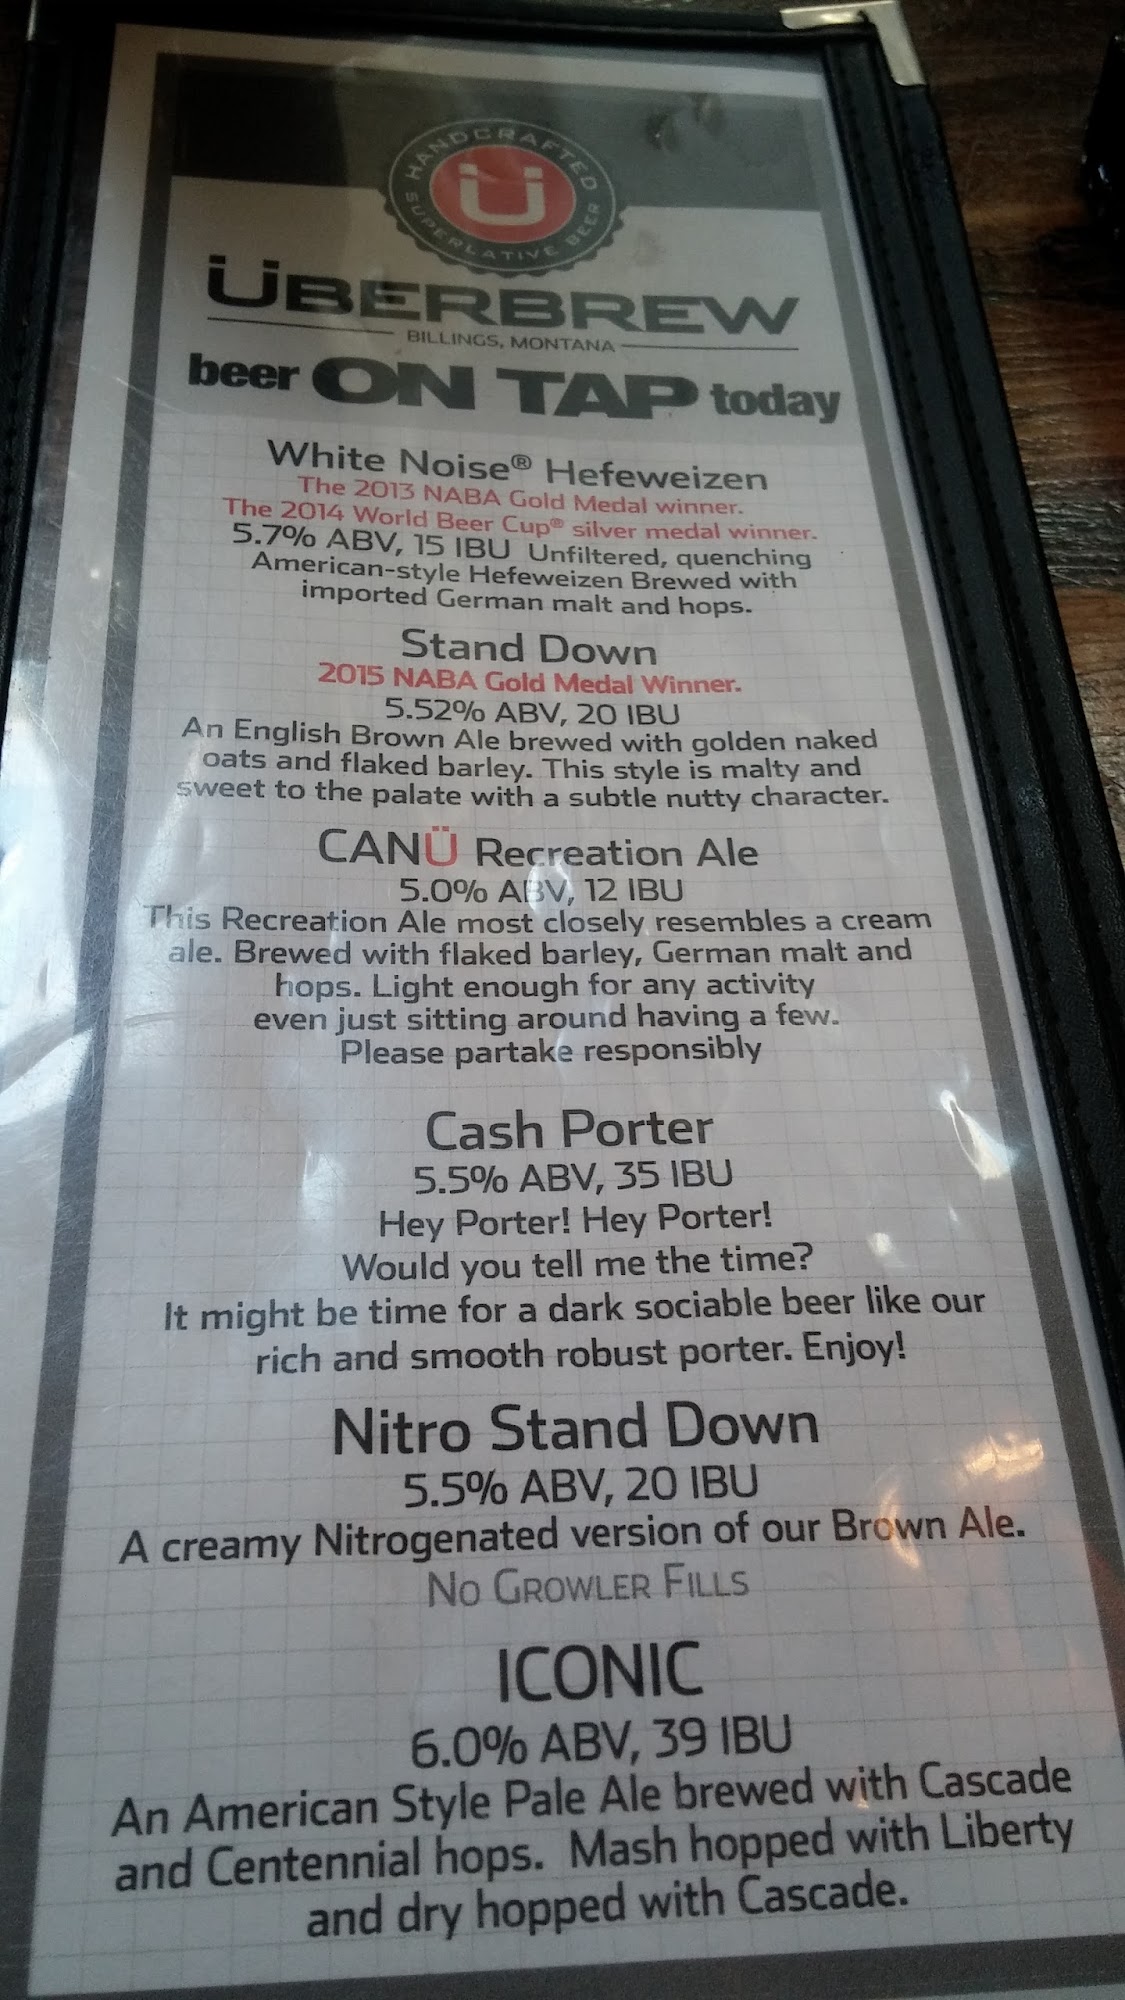 HANDCRAFTED
Ü
SUPERLATIVE BEER
ÜBERBREW
BILLINGS, MONTANA
beer ON TAP today
White Noise® Hefeweizen
The 2013 NABA Gold Medal winner.
The 2014 World Beer Cup® silver medal winner.
5.7% ABV, 15 IBU Unfiltered, quenching
American-style Hefeweizen Brewed with
imported German malt and hops.
Stand Down
2015 NABA Gold Medal Winner.
5.52% ABV, 20 IBU
An English Brown Ale brewed with golden naked
oats and flaked barley. This style is malty and
sweet to the palate with a subtle nutty character.
CANÜ Recreation Ale
5.0% ABV, 12 IBU
This Recreation Ale most closely resembles a cream
ale. Brewed with flaked barley, German malt and
hops. Light enough for any activity
even just sitting around having a few.
Please partake responsibly
Cash Porter
5.5% ABV, 35 IBU
Hey Porter! Hey Porter!
Would you tell me the time?
It might be time for a dark sociable beer like our
rich and smooth robust porter. Enjoy!
Nitro Stand Down
5.5% ABV, 20 IBU
A creamy Nitrogenated version of our Brown Ale.
NO GROWLER FILLS
ICONIC
6.0% ABV, 39 IBU
An American Style Pale Ale brewed with Cascade
and Centennial hops. Mash hopped with Liberty
and dry hopped with Cascade.